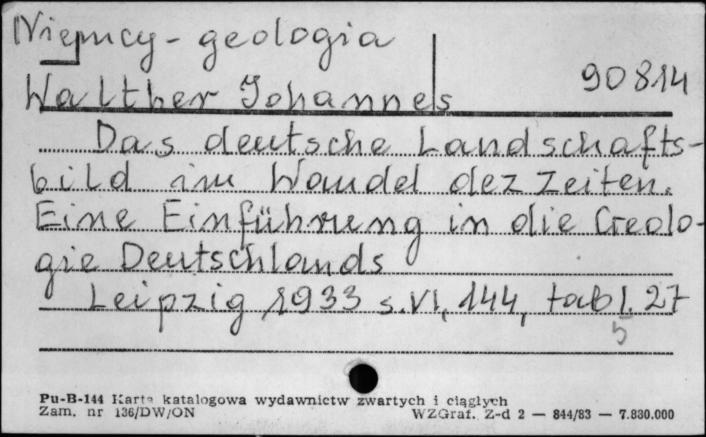 Niemcy - geologia
90814
Walther Johannes
Das deutsche Landschafts-
bild im Wandel der Zeiten.
Eine Einführung in die Geolo-
gie Deutschlands
Leipzig 1933 s. VI, 144, tabl. 27
5
Pu-B-144 Karta katalogowa wydawnictw zwartych i ciągłych
Zam. nr 136/DW/ON WZGraf. Z-d 2 — 844/83 — 7.830.000